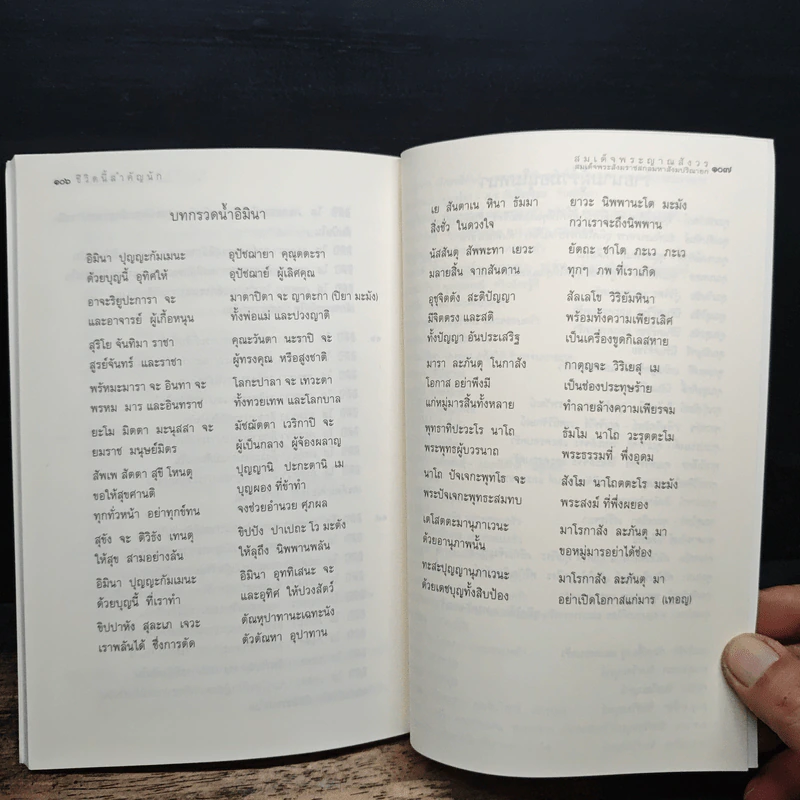 ๑๐๖ ชีวิตนี้สำคัญนัก
บทกรวดน้ำอิมินา
อิมินา ปุญญะกัมเมนะ อุปัชฌายา คุณุตตะรา
ด้วยบุญนี้ อุทิศให้ อุปัชฌาย์ ผู้เลิศคุณ
อาจะริยูปะการา จะ มาตาปิตา จะ ญาตะกา (ปิยา มะมัง)
และอาจารย์ ผู้เกื้อหนุน ทั้งพ่อแม่ และปวงญาติ
สุริโย จันทิมา ราชา คุณะวันตา นะราปิ จะ
สูรย์จันทร์ และราชา ผู้ทรงคุณ หรือสูงชาติ
พรัหมะมารา จะ อินทา จะ โลกะปาลา จะ เทวะตา
พรหม มาร และอินทราช ทั้งทวยเทพ และโลกบาล
ยะโม มิตตา มะนุสสา จะ มัชฌัตตา เวริกาปิ จะ
ยมราช มนุษย์มิตร ผู้เป็นกลาง ผู้จ้องผลาญ
สัพเพ สัตตา สุขี โหนตุ ปุญญานิ ปะกะตานิ เม
ขอให้สุขศานติ บุญผอง ที่ข้าทำ
ทุกทั่วหน้า อย่าทุกข์ทน จงช่วยอำนวย ศุภผล
สุขัง จะ ติวิธัง เทนตุ ขิปปัง ปาเปถะ โว มะตัง
ให้สุข สามอย่างล้น ให้ลุถึง นิพพานพลัน
อิมินา ปุญญะกัมเมนะ อิมินา อุททิเสนะ จะ
ด้วยบุญนี้ ที่เราทำ และอุทิศ ให้ปวงสัตว์
ขิปปาหัง สุละเภ เจวะ ตัณหุปาทานะเฉทะนัง
เราพลันได้ ซึ่งการตัด ตัวตัณหา อุปาทาน
สมเด็จพระญาณสังวร
สมเด็จพระสังฆราชสกลมหาสังฆปริณายก ๑๐๗
เย สันตาเน หินา ธัมมา ยาวะ นิพพานะโต มะมัง
สิ่งชั่ว ในดวงใจ กว่าเราจะถึงนิพพาน
นัสสันตุ สัพพะทา เยวะ ยัตถะ ชาโต ภะเว ภะเว
มลายสิ้น จากสันดาน ทุกๆ ภพ ที่เราเกิด
อุชุจิตตัง สะติปัญญา สัลเลโข วิริยัมหินา
มีจิตตรง และสติ พร้อมทั้งความเพียรเลิศ
ทั้งปัญญา อันประเสริฐ เป็นเครื่องขูดกิเลสหาย
มารา ละภันตุ โนกาสัง กาตุญจะ วิริเยสุ เม
โอกาส อย่าพึงมี เป็นช่องประทุษร้าย
แก่หมู่มารสิ้นทั้งหลาย ทำลายล้างความเพียรจม
พุทธาทิปะวะโร นาโถ ธัมโม นาโถ วะรุตตะโม
พระพุทธผู้บวรนาถ พระธรรมที่ พึ่งอุดม
นาโถ ปัจเจกะพุทโธ จะ สังโฆ นาโถตตะโร มะมัง
พระปัจเจกะพุทธะสมทบ พระสงฆ์ ที่พึ่งผยอง
เตโสตตะมานุภาเวนะ มาโรกาสัง ละภันตุ มา
ด้วยอานุภาพนั้น ขอหมู่มารอย่าได้ช่อง
ทะสะปุญญานุภาเวนะ มาโรกาสัง ละภันตุ มา
ด้วยเดชบุญทั้งสิบป้อง อย่าเปิดโอกาสแก่มาร (เทอญ)